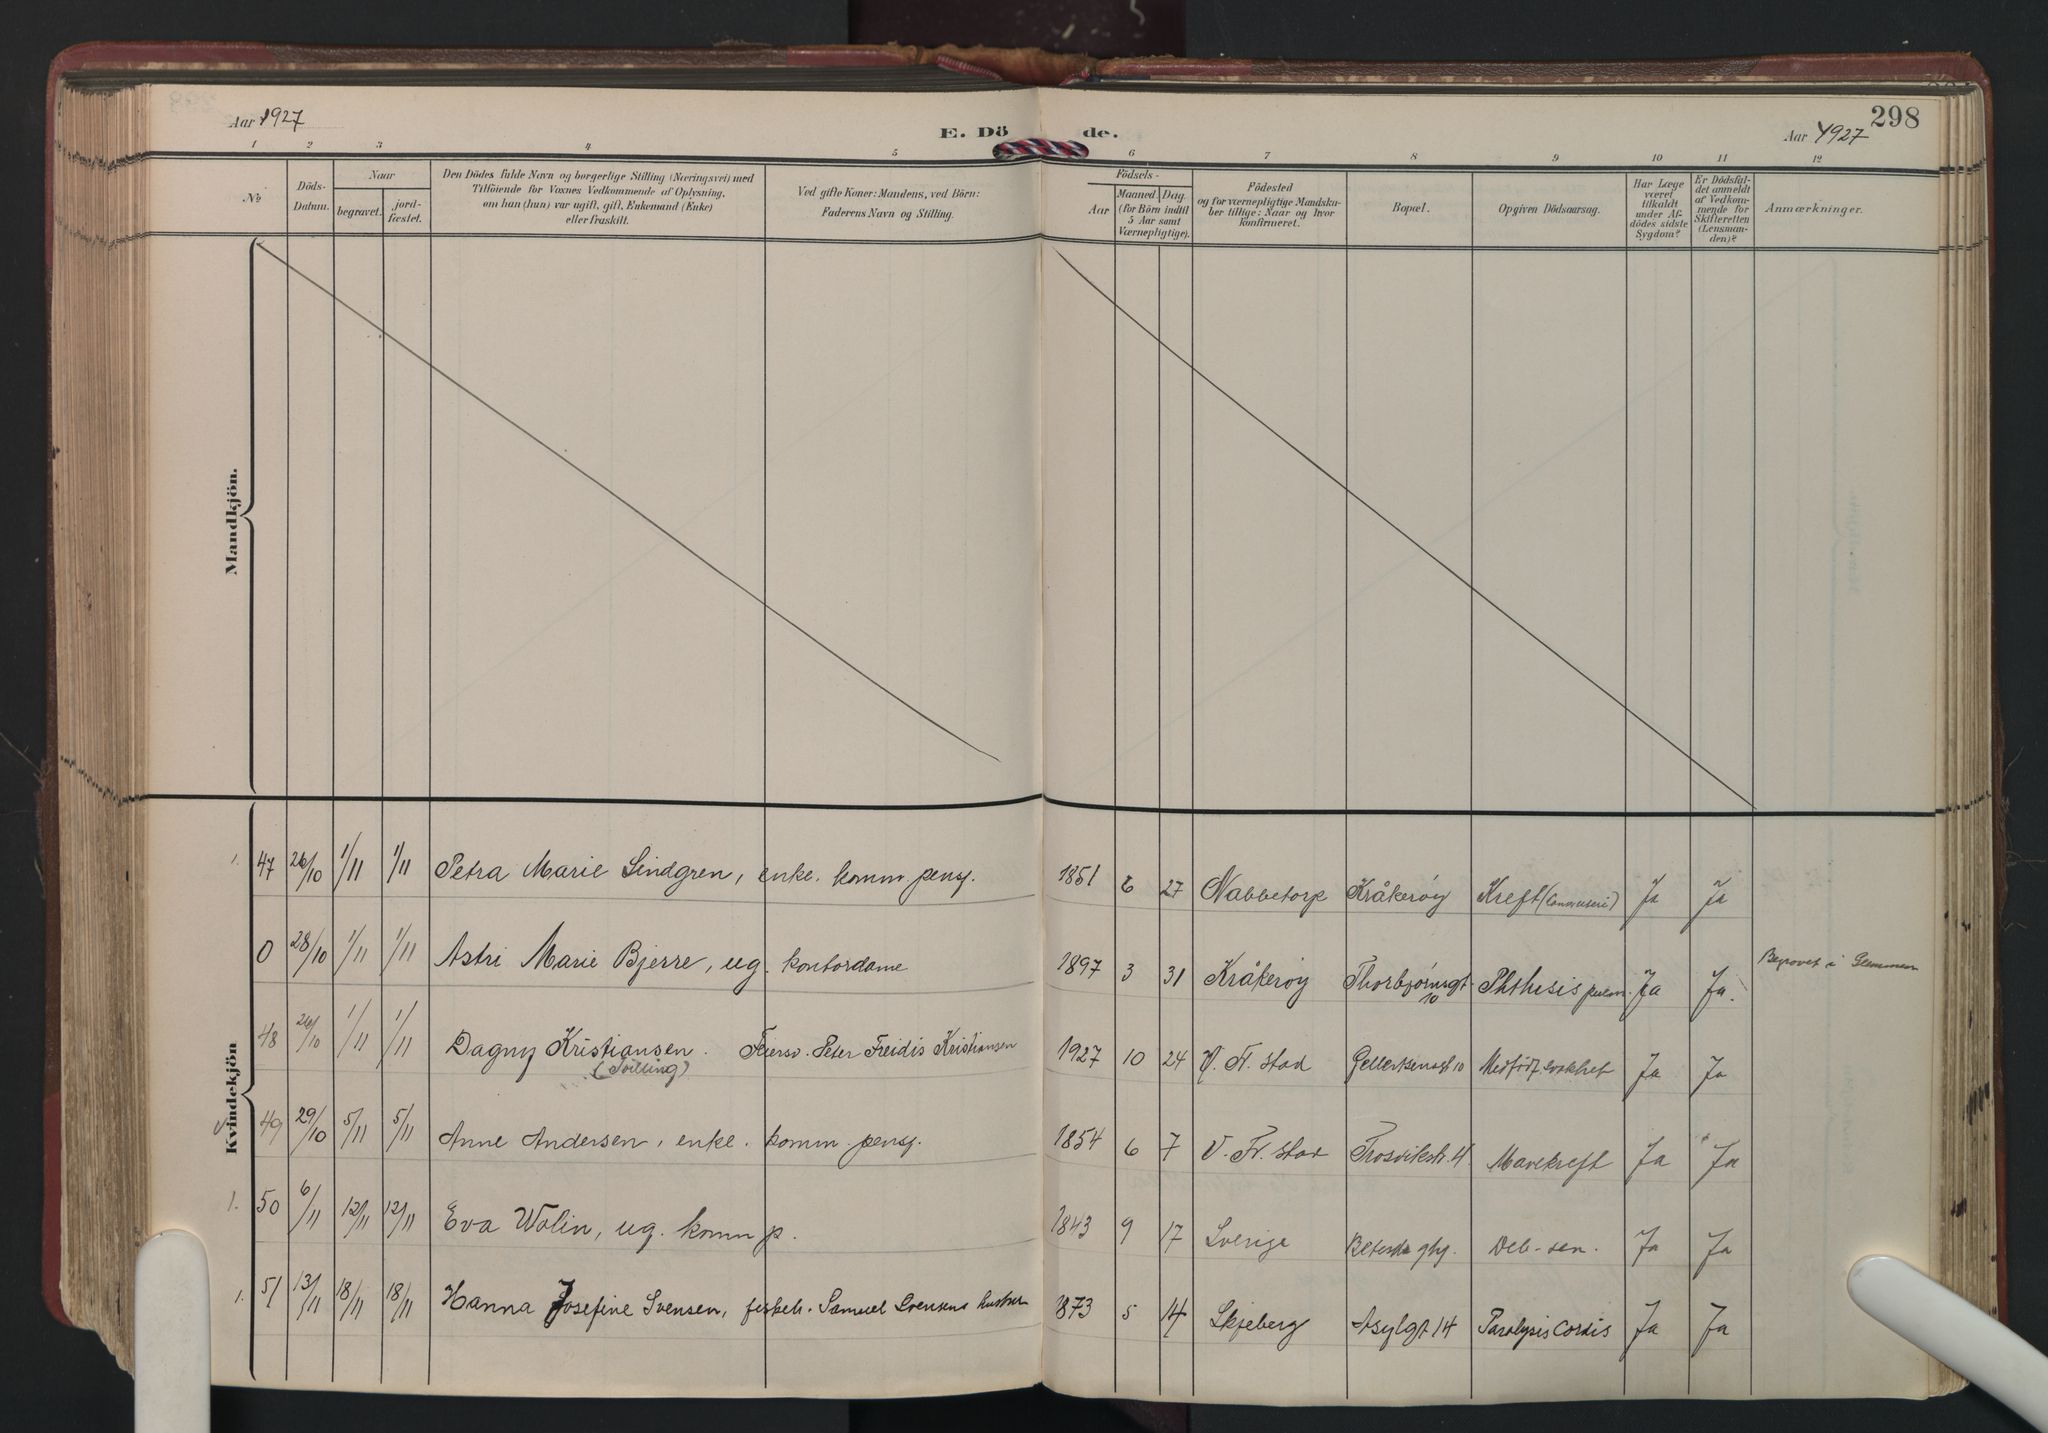 298
Aar 1927
E. Døde.
Aar 1927
1 2 3 4 5 6 7 8 9 10 11 12
No
Döds-Datum.
Naar
begravet.
jord-fæstet.
Den Dödes fulde Navn og borgerlige Stilling (Næringsvei) med
Tilföiende for Voxnes Vedkommende af Oplysning,
om han (hun) var ugift, gift, Enkemand (Enke)
eller fraskilt.
Ved gifte Koner: Mandens, ved Börn:
Faderens Navn og Stilling.
Födsels-
Aar
Maaned. Dag.
(for Börn indtil
5 Aar samt
Værnepligtige).
Födested
og for værnepligtige Mandska-
ber tillige: Naar og hvor
konfirmeret.
Bopæl.
Opgiven Dödsaarsag.
Har Læge
været
tilkaldt
under Af-
dödes sidste
Sygdom?
Er Dödsfal-
det anmeldt
af Vedkom-
mende for
Skifteretten
(Lensman-
den)?
Anmærkninger.
Mandkjön.
Kvindekjön
1. 47 26/10 1/11 1/11 Petra Marie Lindgren, enke. komm. pensj. 1851 6 27 Nabbetorp Kråkerøy Kreft Ja Ja
0 28/10 1/11 1/11 Astri Marie Bjerre, ug. kontordame 1897 3 31 Kråkerøy Thorbjørnsgt. 10 Phthisis pulm. Ja Ja. Begravet i Glemmen
48 26/10 1/11 1/11 Dagny Kristiansen. Feiersv. Peter Freidis Kristiansen 1927 10 24 V. Fr. stad Gellertsensgt 10 Medfødt svakhet Ja Ja
(Tvilling)
49 29/10 5/11 5/11 Anne Andersen, enke. komm. pensj. 1854 6 7 V. Fr. stad Trosvikstr. 41. Mavekreft Ja Ja
1. 50 6/11 12/11 12/11 Eva Wolin, ug. komm p. 1843 9 17 Sverige Deb. sen. Ja Ja
1. 51 13/11 18/11 18/11 Hanna Josefine Svensen, fiskeh. Samuel Svensens hustru 1873 5 14 Skjeberg Asylgt 14 Paralysis cordis Ja Ja